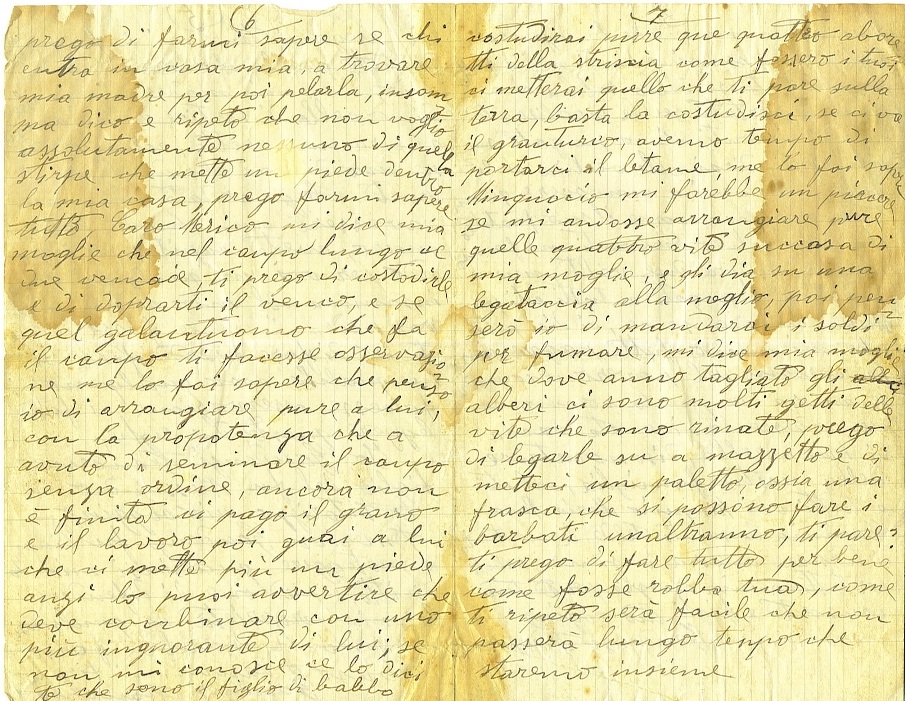 6
prego di farmi sapere se chi
entra in casa mia, a trovare
mia madre per poi pelarla, insom
ma dico e ripeto che non voglio
assolutamente nessuno di quella
stirpe che mette un piede dentro
la mia casa, prego farmi sapere
tutto, Caro Merico mi dice mia
moglie che nel campo lungo ce
due vencae, ti prego di costodirle
e di doprarti il venco, e se
quel galantuomo che fa
il campo ti facesse osservazio
ne me lo fai sapere che penso
io di arrangiare pure a lui,
con la propotenza che a
avuto di seminare il campo
senza ordine, ancora non
è finita ci pago il grano
e il lavoro poi guai a lui
che ci mette piu un piede
anzi lo puoi avvertire che
deve combinare con uno
più ingnorante di lui, se
non mi conosce ce lo dici
te che sono il figlio di babbo
7
costudirai pure que quattro albore
tti della striscia come fossero i tuoi
ci metterai quello che ti pare sulla
terra, basta la costudisci, se ci va
il granturco, avemo tempo di
portarci il letame me lo fai sapere
Minguccio mi farebbe un piacere
se mi andosse arrangiare pure
quelle quattro vite succasa di
mia moglie, e gli dia su una
legataccia alla meglio, poi pen
serò io di mandarci i soldi
per fumare, mi dice mia moglie
che dove anno tagliato gli
alberi ci sono molti getti delle
vite che sono rinate, prego
di legarle su a mazzetto e di
metteci un paletto, ossia una
frasca, che si possono fare i
barbati unaltranno, ti pare?
ti prego di fare tutto per bene
come fosse robba tua, come
ti ripeto serà facile che non
passerà lungo tempo che
staremo insieme